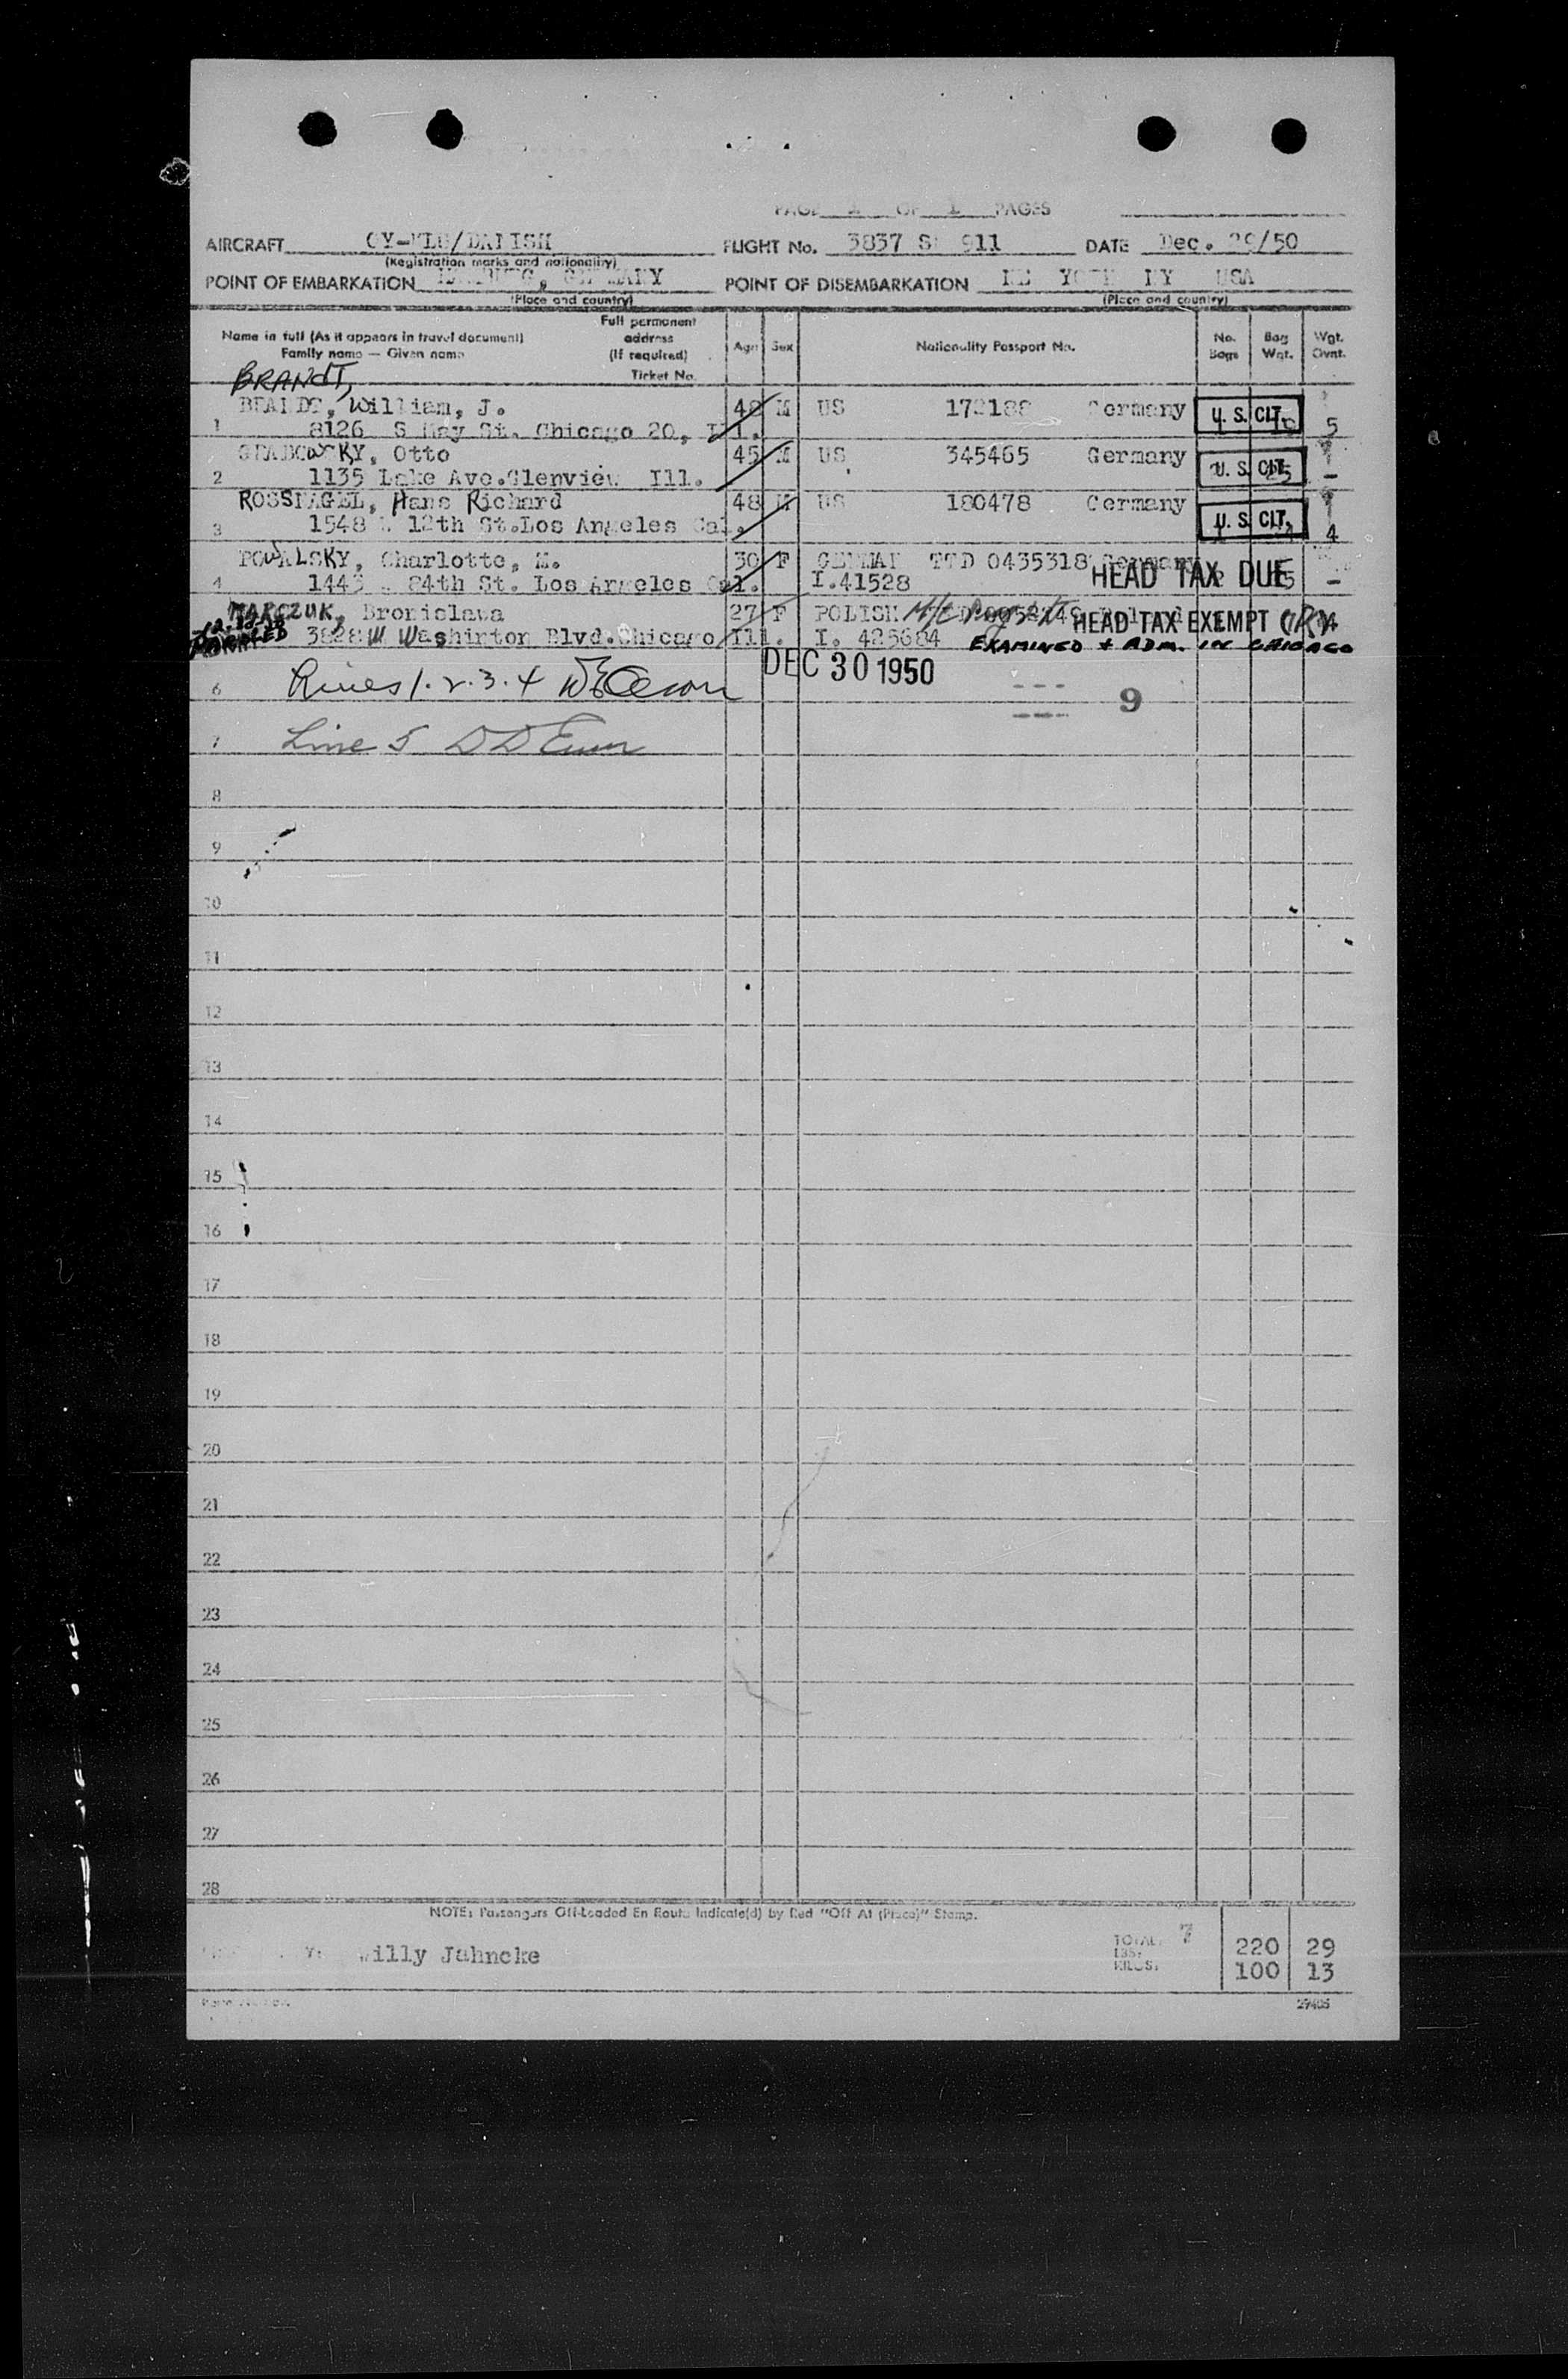 PAGE 1 OF 1 PAGES
AIRCRAFT /DANISH FLIGHT No. 3837 SK 911 DATE Dec. 29/50
(Registration marks and nationality)
POINT OF EMBARKATION HAMBURG, GERMANY POINT OF DISEMBARKATION NEW YORK NY USA
(Place and country) (Place and country)
Name in full (As it appears in travel document) Family name — Given name Full permanent address (If required) Ticket No. Age Sex Nationality Passport No. No. Bags Bag Wgt. Wgt. Ovnt.
BRANDT,
BRANDT, William, J. 48 M US 172188 Germany U. S. CIT. 5
1 8126 S May St. Chicago 20, Ill.
GRABOWSKY, Otto 45 M US 345465 Germany U. S. CIT. -
2 1135 Lake Ave. Glenview Ill.
ROSSNAGEL, Hans Richard 48 M US 180478 Germany U. S. CIT. 4
3 1548 12th St. Los Angeles Cal.
POWALSKY, Charlotte, M. 30 F GERMAN TTD 0435318 Germany HEAD TAX DUE -
4 1443 84th St. Los Angeles Cal. I.41528
MARCZUK, Bronislawa 27 F POLISH HEAD TAX EXEMPT 4
3828 W Washinton Blvd. Chicago Ill. I. 425684 EXAMINED + ADM. IN CHICAGO
DEC 30 1950
6 Lines 1. 2. 3. 4
9
7 Line 5
8
9
10
11
12
13
14
15
16
17
18
19
20
21
22
23
24
25
26
27
28
NOTE: Passengers Off-Loaded En Route Indicate(d) by Red "Off At (Place)" Stamp.
Willy Jahncke TOTAL: 7
LBS: 220 29
KILOS: 100 13
29405